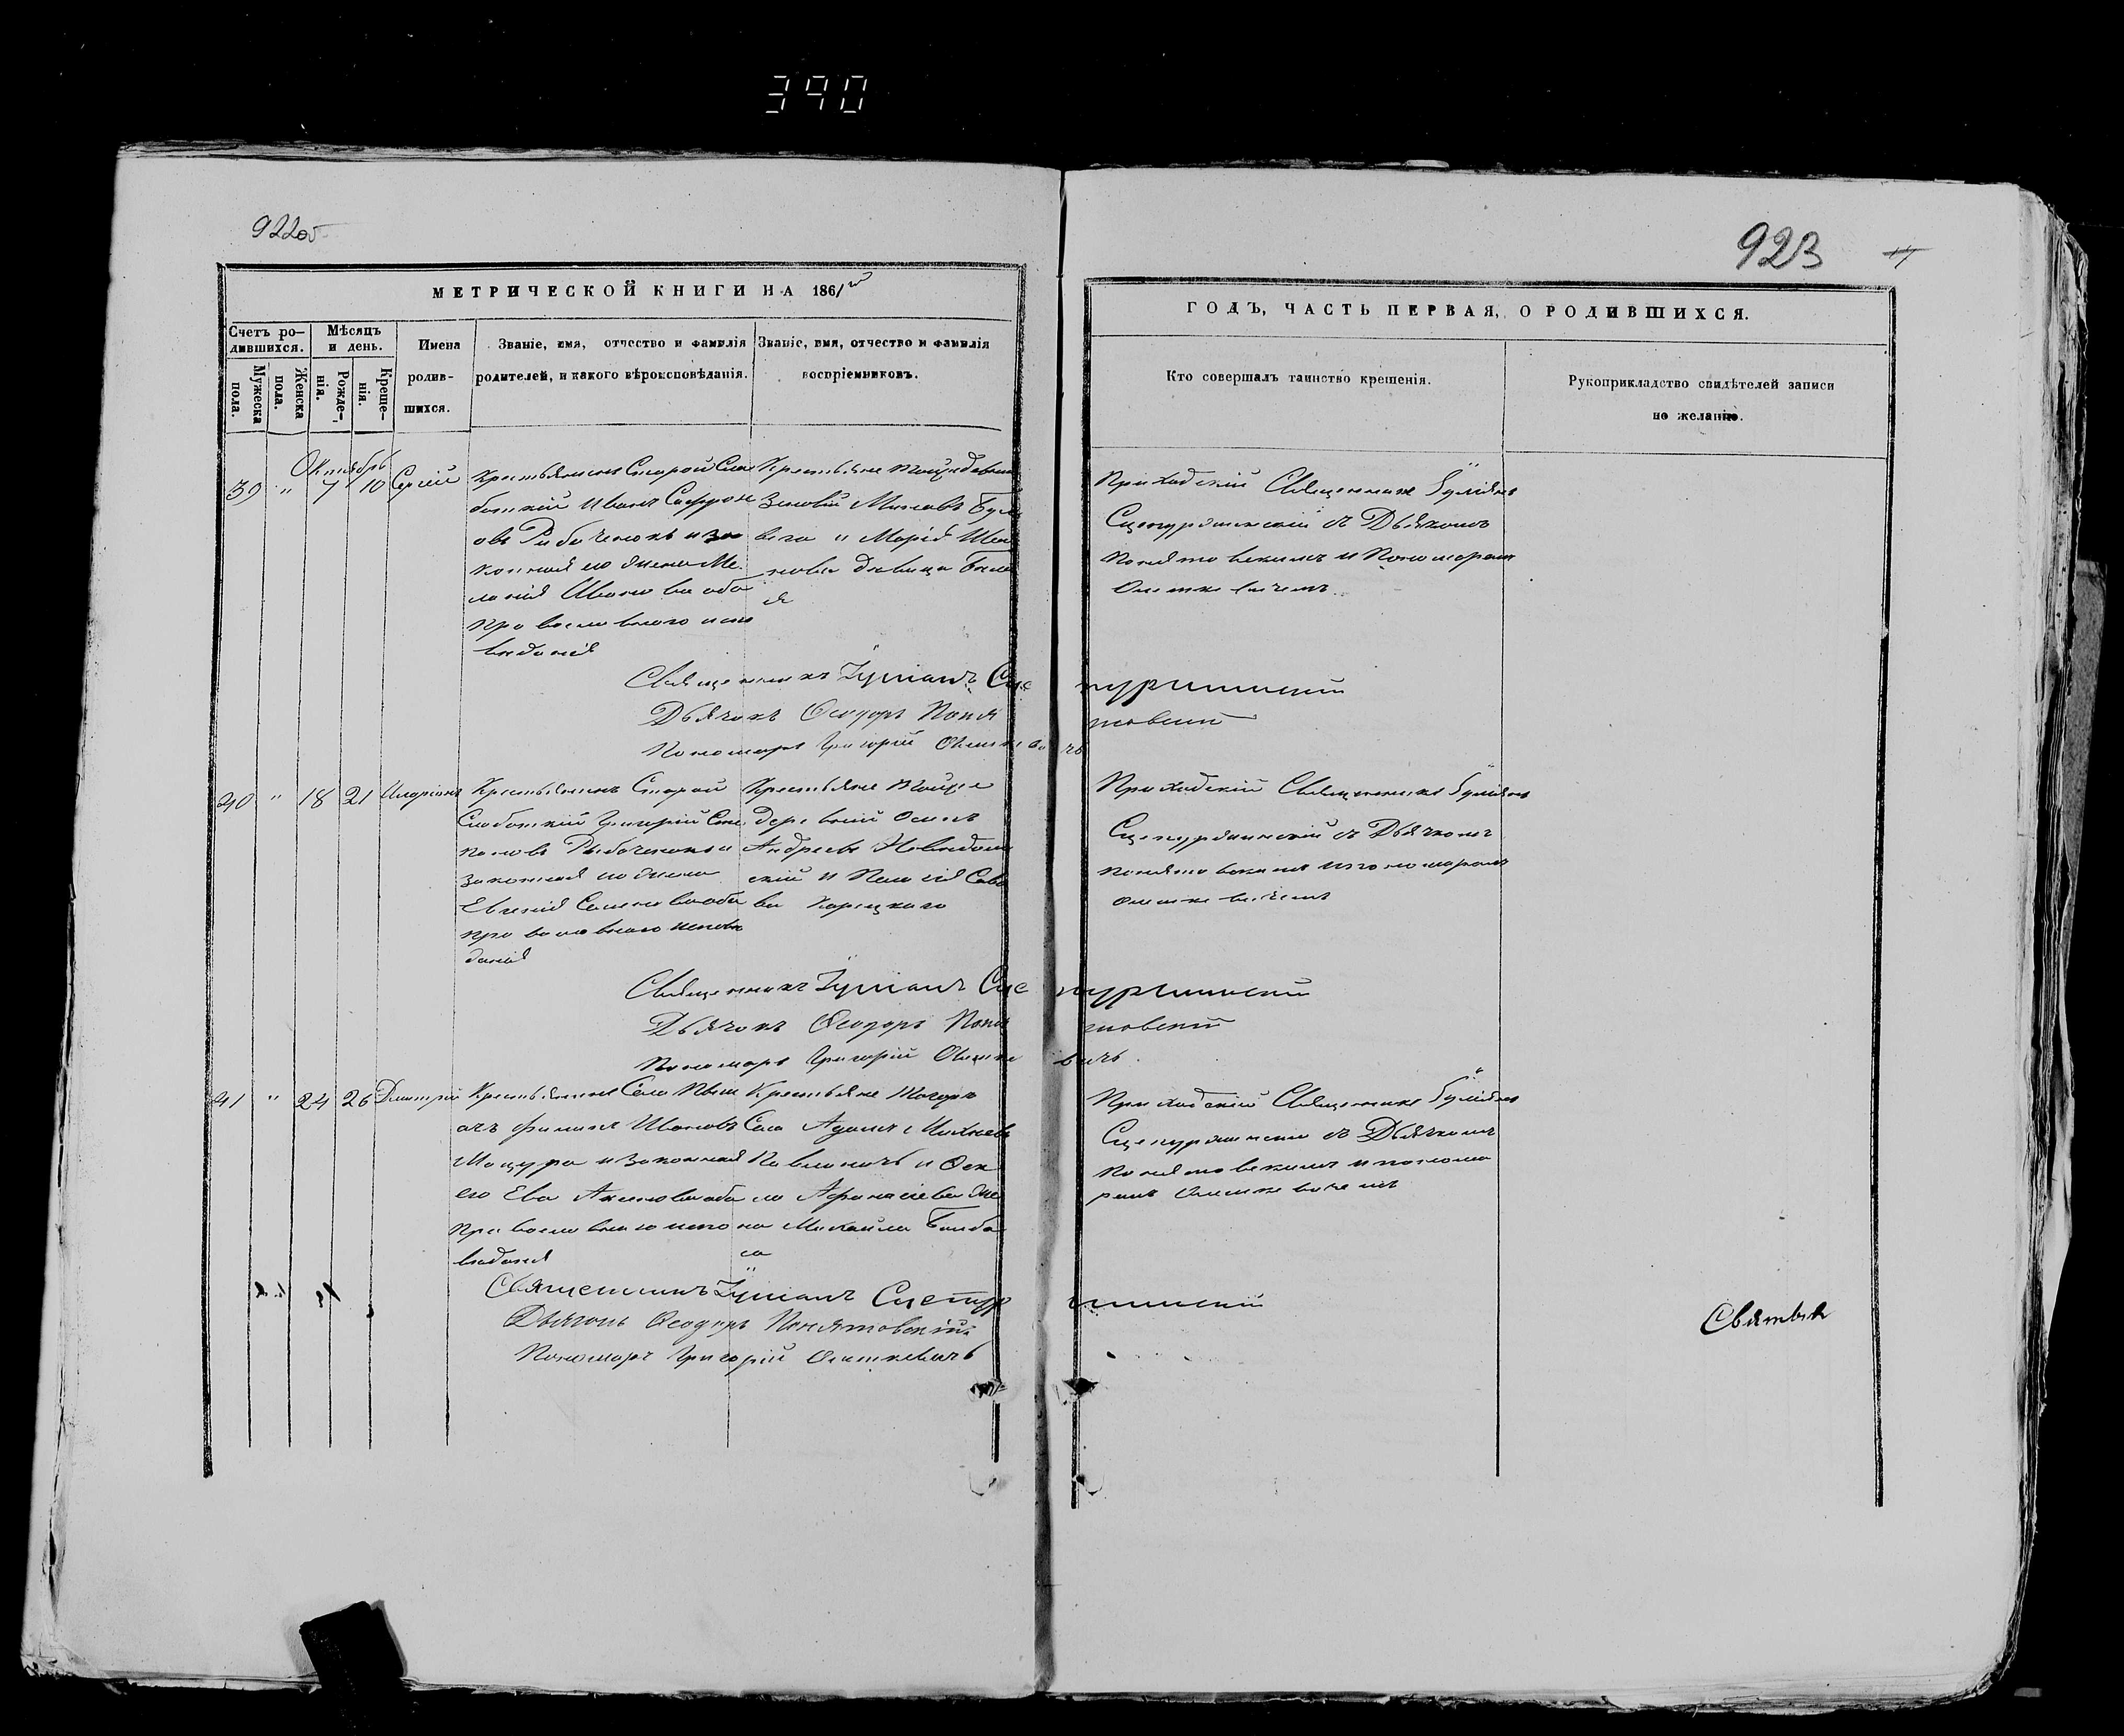 390
922об
923
МЕТРИЧЕСКОЙ КНИГИ НА 1861 го
ГОДЪ, ЧАСТЬ ПЕРВАЯ, О РОДИВШИХСЯ.
Счетъ ро-
дившихся.
Мужеска
пола.
Женска
пола.
Мѣсяцъ
и день.
Рожде-
нія.
Креще-
нія.
Имена
родив-
шихся.
Званіе, имя, отчество и фамилія
родителей, и какого вѣроисповѣданія.
Званіе, имя, отчество и фамилія
воспріемниковъ.
Кто совершалъ таинство крещенія.
Рукоприкладство свидѣтелей записи
по желанію.
Октябрь
39 " 7 10 Сергій
Крестьянинъ Старой Сло
боткий Иванъ Софрон
овъ Рибаченокъ и за
конная его жена Ме
ланія Иванова оба
православного испо
вѣданія
Крестьяне
Зиновій
и Марія Ива
нова дѣвица
Приходскій Священникъ Іуліанъ
Сцепуржинскій съ Дьячкомъ
Понятовскимъ и Пономаремъ
Олешкевичемъ
Священникъ Іуліанъ Сцепуржинскій
Дьячокъ Ѳеодоръ Понятовскій
Пономарь Григорій Олешкевичъ
40 " 18 21 Иларіонъ
Крестьянинъ Старой
Слоботкий Григорій
Рыбаченокъ и
законная его жена
Евгенія Семенова оба
православного исповѣ
данія
Крестьяне тойже
деревни Осипъ
Андреевъ
скій и Пелагія Сав
ва Корецкаго
Приходскій Священникъ Іуліанъ
Сцепуржинскій съ Дьячкомъ
Понятовскимъ и пономаремъ
Олешкевичемъ
Священникъ Іуліанъ Сцепуржинскій
Дьячокъ Ѳеодоръ Понятовскій
Пономарь Григорій Олешкевичъ.
41 " 24 26 Димитрій
Крестьянинъ Села
Филипъ Ивановъ
Мацура и законная
его Ева оба
православного испо
вѣданія
Крестьяне тогоже
Села Адамъ
и Ѳек
ла Афанасіева же
на Михаила
Приходскій Священникъ Іуліанъ
Сцепуржинскій съ Дьячкомъ
Понятовскимъ и пономаремъ
Олешкевичемъ
Священникъ Іуліанъ Сцепуржинскій
Дьячокъ Ѳеодоръ Понятовскій
Пономарь Григорій Олешкевичъ